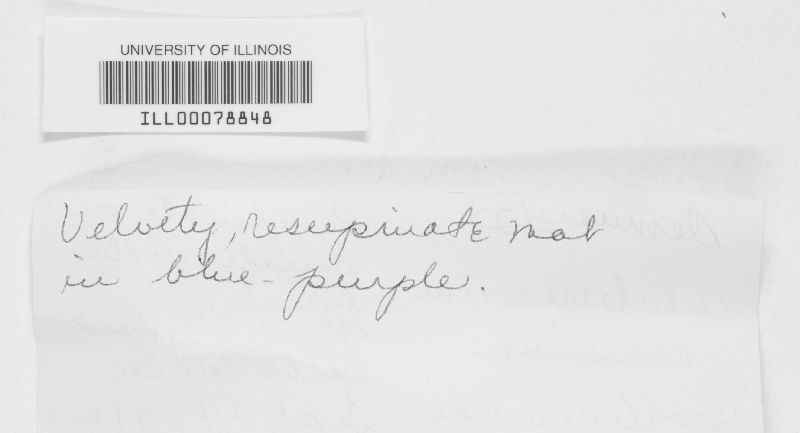 UNIVERSITY OF ILLINOIS
ILL00078848
Velvety, resupinate mat
in blue-purple.